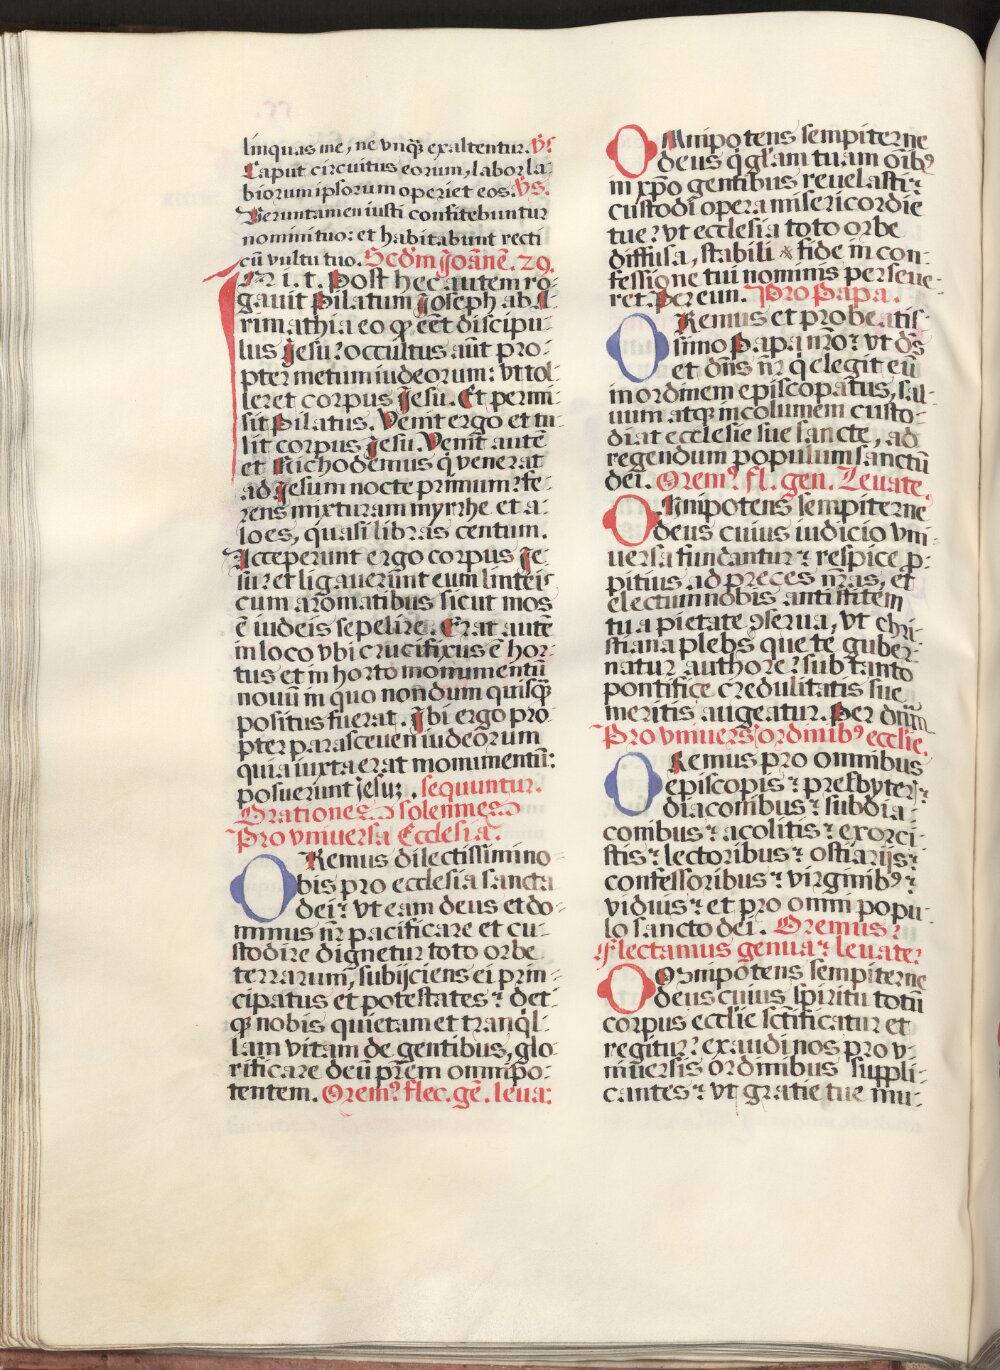 linquas me, ne vnq̃ exaltentur. Vs̃
Caput circuitus eorum, labor la:
biorum ipsorum operiet eos. Vs.
Veruntamen iusti confitebuntur
nomini tuo: et habitabunt recti
cũ vultu tuo. Scd̃m Joãnẽ. 29.
IN i. t. Post hec autem ro:
gauit Pilatum Joseph ab A:
rimathia eo ꝙ eẽt discipu:
lus Jesu: occultus aũt pro:
pter metum iudeorum: vt tol:
leret corpus Jesu. Et permi
sit Pilatus. Venit ergo et tu:
lit corpus Jesu. Venit autẽ
et Nichodemus q̃ venerat
ad Jesum nocte primum: fe:
rens mixturam myrrhe et a:
loes, quasi libras centum.
Acceperunt ergo corpus Je:
su: et ligauerunt eum linteis
cum aromatibus sicut mos
ẽ iudeis sepelire. Erat autẽ
in loco vbi crucifixus ẽ hor:
tus et in horto monumentũ
nouũ in quo nondum quisq̃
positus fuerat. Ibi ergo pro:
pter parasceuen iudeorum
quia iuxta erat monumentũ:
posuerunt Jesuz. sequuntur.
Orationes solemnes
Pro vniuersa Ecclesia.
ORemus dilectissimi no:
bis pro ecclesia sancta
dei: vt eam deus et do:
minus nr̃ pacificare et cu:
stodire dignetur toto orbe
terrarum, subijciens ei prin:
cipatus et potestates: det:
q̃ nobis quietam et tranq̃l:
lam vitam de gentibus, glo:
rificare deũ pr̃em omnipo:
tentem. Orem⁹ flec. gẽ. leua:
OMnipotens sempiterne
deus q̃ gl̃am tuam oĩb⁹
in xp̃o gentibus reuelasti:
custodi opera misericordie
tue: vt ecclesia toto orbe
diffusa, stabili fide in con:
fessione tui nominis perseue:
ret. Per eum. Pro Papa.
ORemus et pro beatis:
simo Papa nr̃o: vt ds̃
et dñs nr̃ q̃ elegit eũ
in ordinem episcopatus, sal:
uum atq̃ incolumem custo:
diat ecclesie sue sancte, ad
regendum populum sanctũ
dei. Orem⁹ fl. gen. Leuate.
OMnipotens sempiterne
deus cuius iudicio vni:
uersa fundantur: respice p̱:
pitius ad preces nr̃as, et
electum nobis antistitem
tua pietate ꝯserua, vt chri:
stiana plebs que te guber:
natur authore: sub tanto
pontifice credulitatis sue
meritis augeatur. Per dñm
Pro vniuers̃ ordinib⁹ eccl̃ie.
ORemus pro omnibus
episcopis: presbyter̃:
diaconibus: subdia:
conibus: acolitis: exorci:
stis: lectoribus: ostiarijs:
confessoribus: virginib⁹:
viduis: et pro omni popu:
lo sancto dei. Oremus:
Flectamus genua: leuate:
OMnipotens sempiterne
deus cuius spiritu totũ
corpus eccl̃ie sc̃tificatur et
regitur: exaudi nos pro v:
niuersis ordinibus suppli:
cantes: vt gratie tue mu: